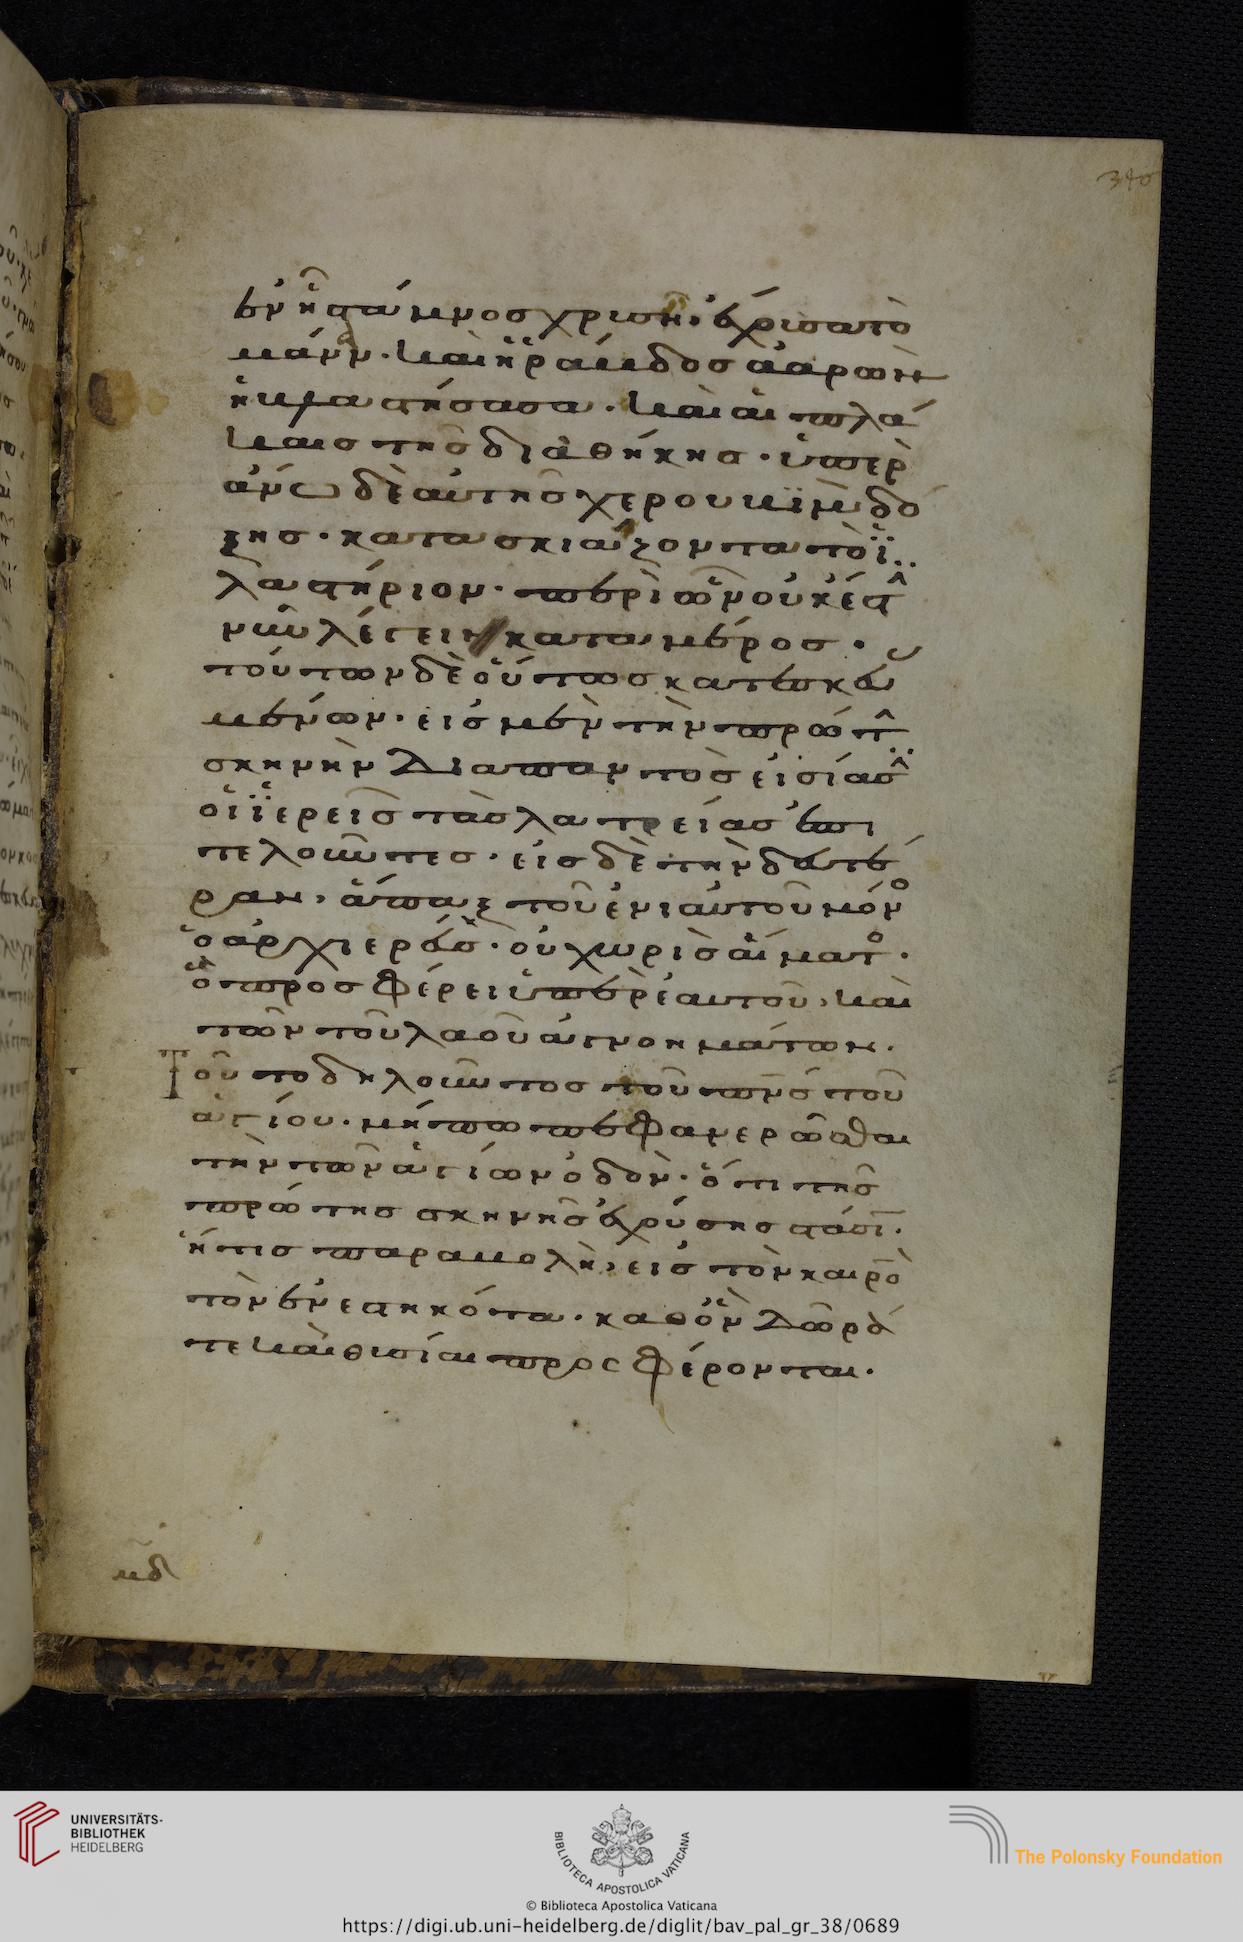 340
ἐν ᾗ στάμνος χρυσῆ· ἔχουσα τὸ
μάννα· καὶ ἡ ῥάβδος ἀαρὼν
ἡ βλαστήσασα· καὶ αἱ πλά
κες τῆς διαθήκης· ὑπερ
άνω δὲ αὐτῆς χερουβὶμ δό
ξης· κατασκιάζοντα τὸ ϊ
λαστήριον· περὶ ὧν οὐκ έστ
νῦν λέγειν κατα μέρος·
τούτων δὲ οὕτως κατεσκευ
μένων· εἰς μὲν τὴν πρώτ
σκηνὴν διαπαντὸς εἰσίασ
οἱ ϊερεῖς τὰς λατρείας ἐπι
τελοῦντες· εἰς δὲ τὴν δευτέ
ραν, ἅπαξ τοῦ ἐνιαυτοῦ μόν
ὁ ἀρχιερεύς· οὐ χωρὶς αἵματ·
ὃ προσφέρει ὑπὲρ ἑαυτοῦ, καὶ
τῶν τοῦ λαοῦ ἀγνοημάτων.
Τοῦτο δηλοῦντος τοῦ πνς τοῦ
ἁγίου· μήπω πεφανερῶσθαι
τὴν τῶν ἁγίων ὁδὸν· ἔτι τῆς
πρώτης σκηνῆς ἐχούσης στάσι·
ἥτις παραβολὴ, εἰς τὸν καιρὸ
τὸν ἐνεστηκότα· καθ ὃν δῶρά
τε καὶ θυσίαι προσφέρονται·
μδ
UNIVERSITÄTS-
BIBLIOTHEK
HEIDELBERG
BIBLIOTECA APOSTOLICA VATICANA
© Biblioteca Apostolica Vaticana
The Polonsky Foundation
https://digi.ub.uni-heidelberg.de/diglit/bav_pal_gr_38/0689